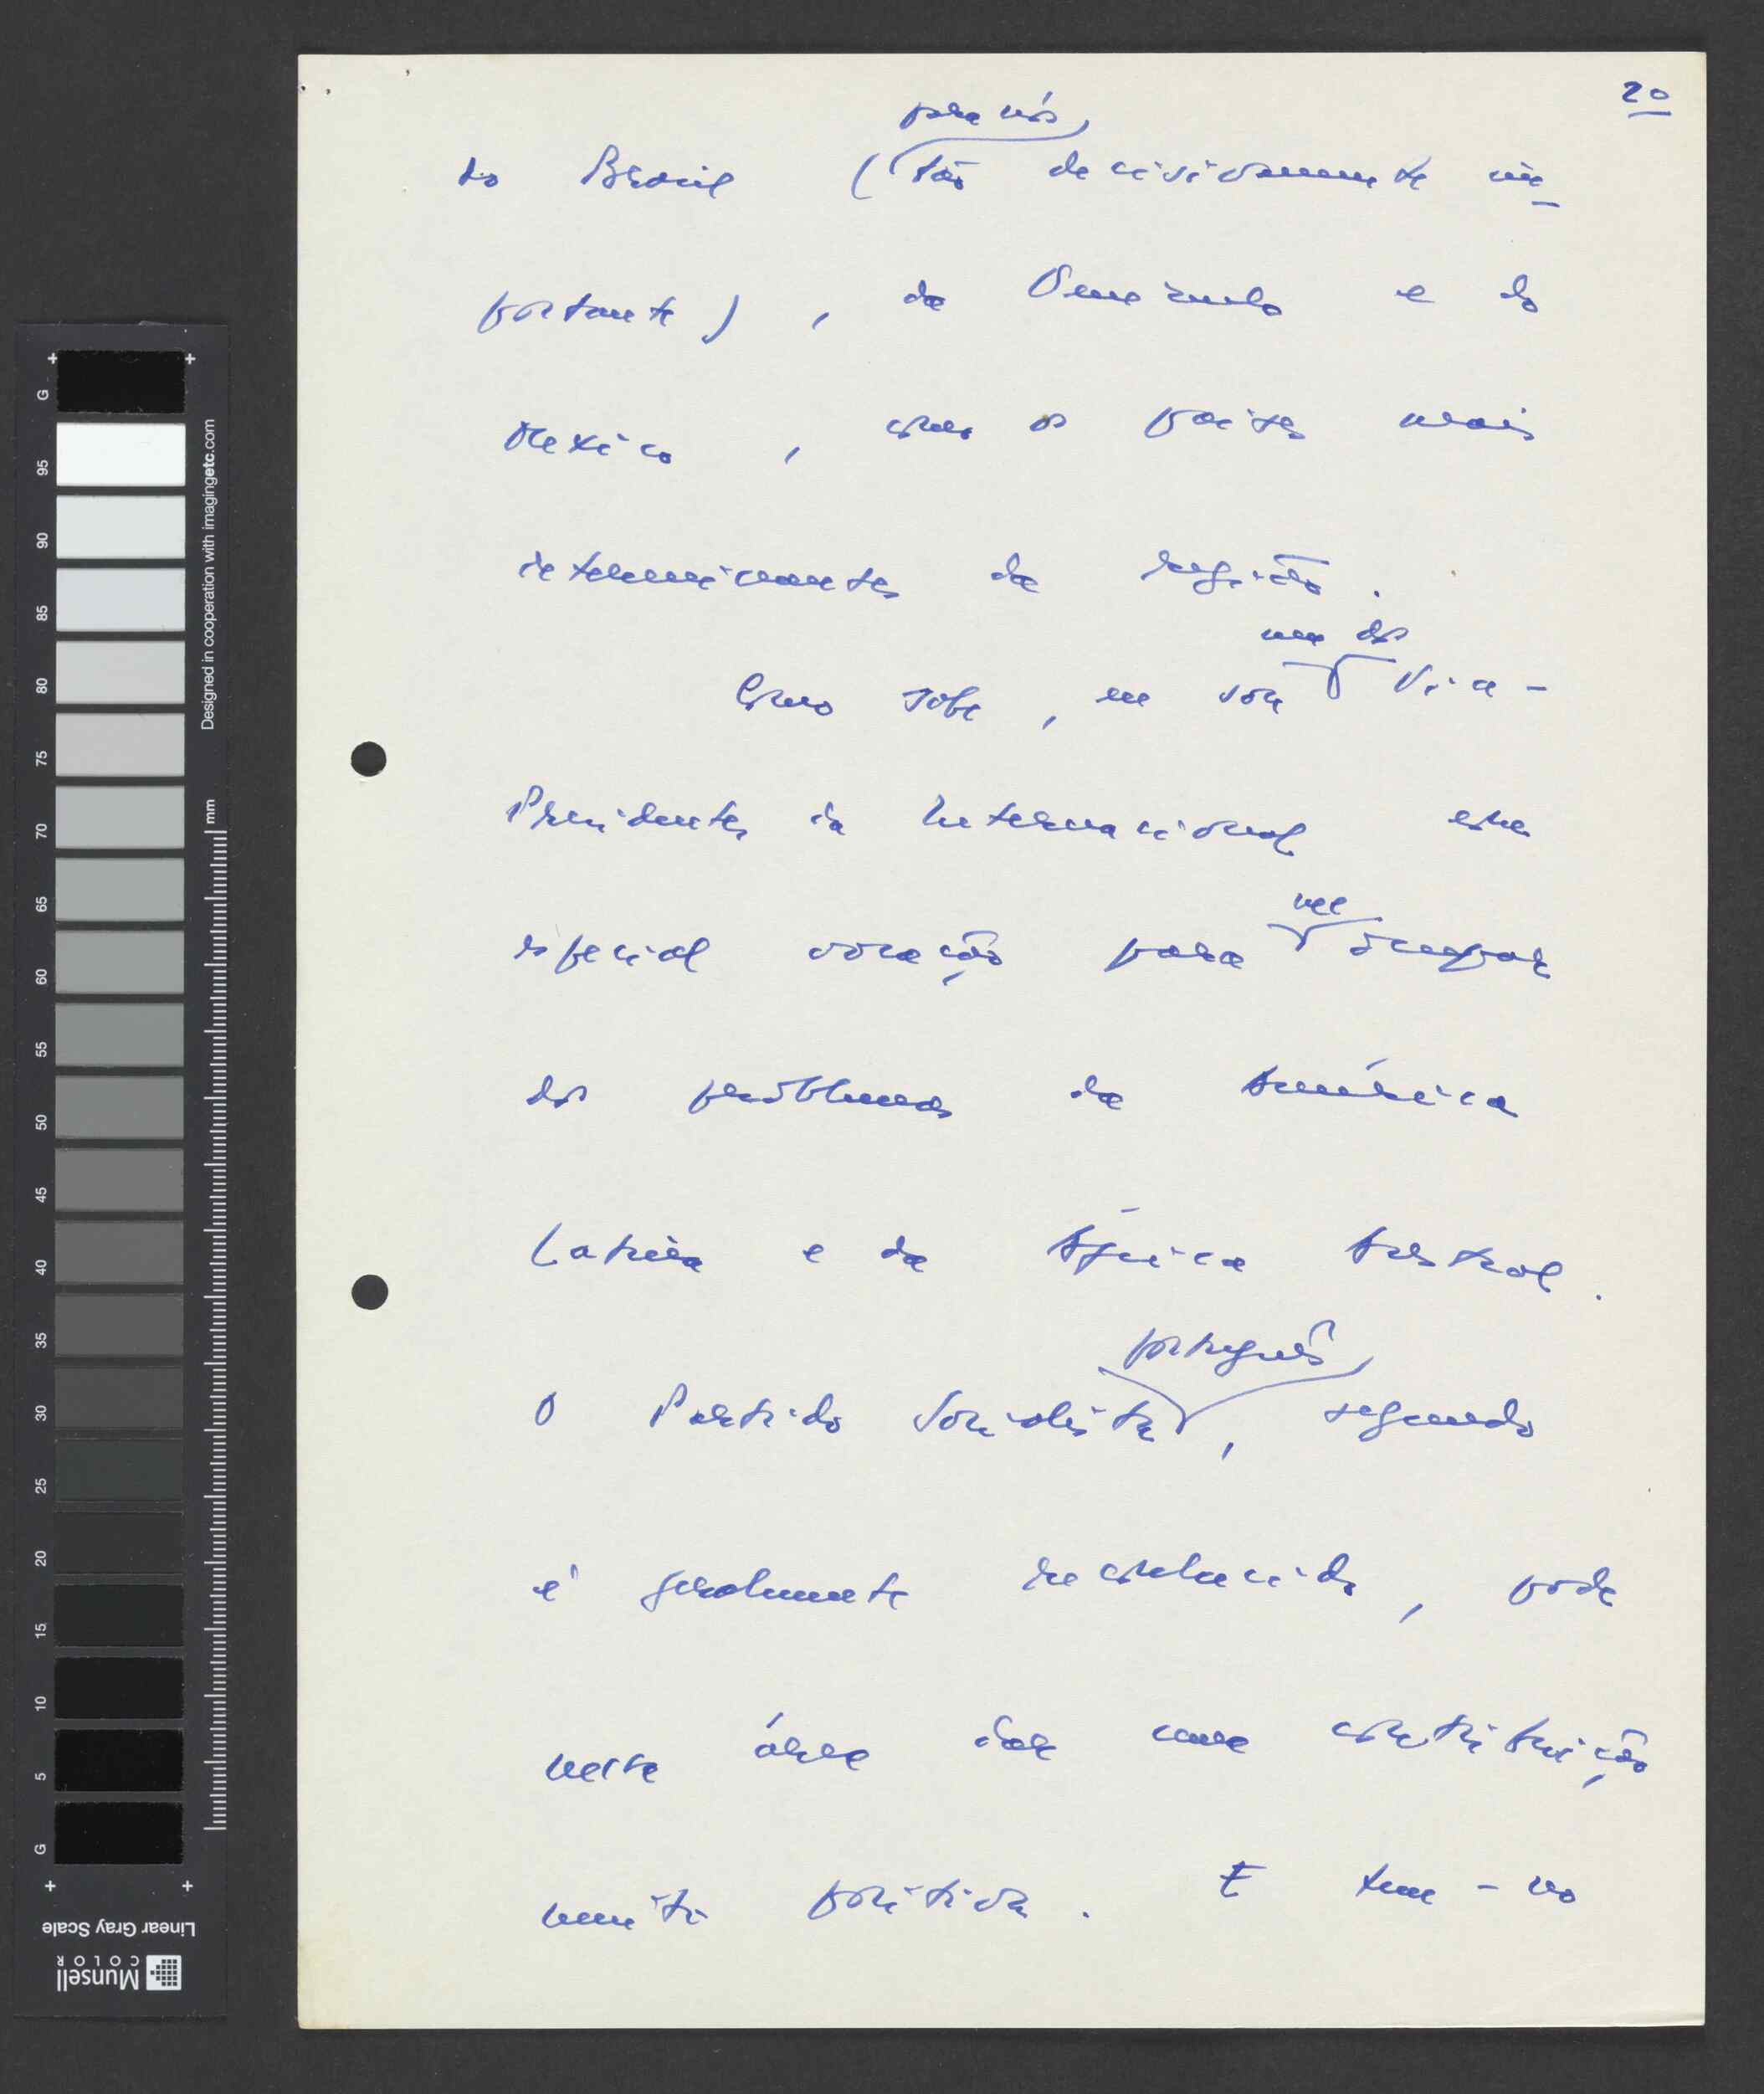 20
para nós
do Brasil (tão decisivamente im-
portante), da Venezuela e do
México, com os países mais
determinantes da região.
um dos
Como sabe, eu sou Vice-
Presidentes da Internacional com
especial vocação para me ocupar
dos problemas da América
Latina e da África Austral.
português
O Partido Socialista, segundo
é geralmente reconhecido, pode
nessa área dar uma contribuição
muito positiva. E tem-no
G
95
90
85
80
75
70
65
60
55
50
45
40
35
30
25
20
15
10
5
G
mm
Designed in cooperation with imagingetc.com
Linear Gray Scale
Munsell
COLOR